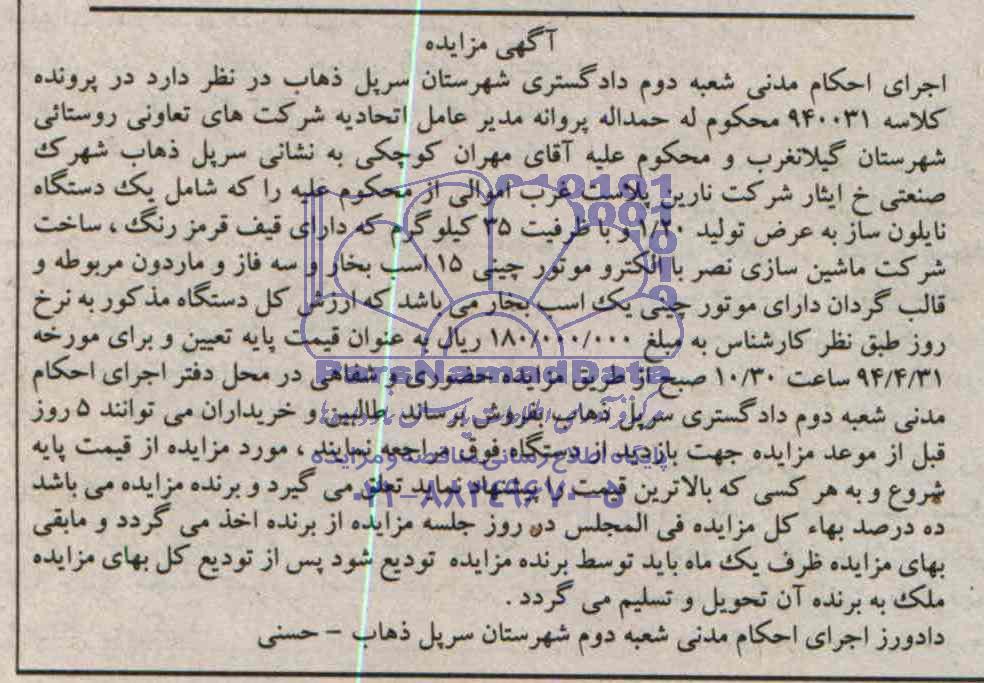 آگهی مزایده
اجرای احکام مدنی شعبه دوم دادگستری شهرستان سرپل ذهاب در نظر دارد در پرونده
کلاسه ۹۴۰۰۳۱ محکوم له حمداله پروانه مدیر عامل اتحادیه شرکت های تعاونی روستائی
شهرستان گیلانغرب و محکوم علیه آقای مهران کوچکی به نشانی سرپل ذهاب شهرک
صنعتی خ ایثار شرکت نارین پلاست غرب اموالی از محکوم علیه را که شامل یک دستگاه
نایلون ساز به عرض تولید ۱/۲۰ و با ظرفیت ۳۵ کیلو گرم که دارای قیف قرمز رنگ ، ساخت
شرکت ماشین سازی نصر با الکترو موتور چینی ۱۵ اسب بخار و سه فاز و ماردون مربوطه و
قالب گردان دارای موتور چینی یک اسب بخار می باشد که ارزش کل دستگاه مذکور به نرخ
روز طبق نظر کارشناس به مبلغ ۱۸۰/۰۰۰/۰۰۰ ریال به عنوان قیمت پایه تعیین و برای مورخه
۹۴/۴/۳۱ ساعت ۱۰/۳۰ صبح از طریق مزایده حضوری و شفاهی در محل دفتر اجرای احکام
مدنی شعبه دوم دادگستری سرپل ذهاب بفروش برساند طالبین و خریداران می توانند ۵ روز
قبل از موعد مزایده جهت بازدید از دستگاه فوق مراجعه نمایند ، مورد مزایده از قیمت پایه
شروع و به هر کسی که بالاترین قیمت را پیشنهاد نماید تعلق می گیرد و برنده مزایده می باشد
ده درصد بهاء کل مزایده فی المجلس در روز جلسه مزایده از برنده اخذ می گردد و مابقی
بهای مزایده ظرف یک ماه باید توسط برنده مزایده تودیع شود پس از تودیع کل بهای مزایده
ملک به برنده آن تحویل و تسلیم می گردد .
دادورز اجرای احکام مدنی شعبه دوم شهرستان سرپل ذهاب – حسنی
ParsNamadData
پایگاه اطلاع رسانی مناقصه و مزایده
۰۲۱-۸۸۳٤۹٦۷۰-۵